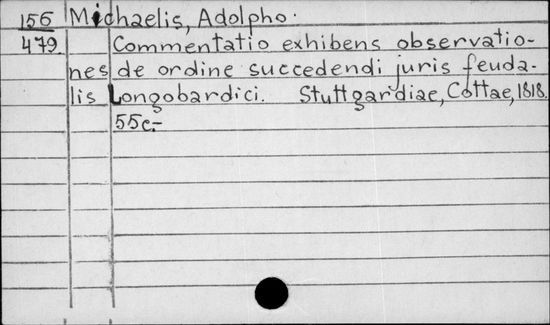 156 Michaelis, Adolpho.
479 Commentatio exhibens observatio-
nes de ordine succedendi juris feuda-
lis Longobardici. Stuttgardiae, Cottae, 1818.
55c.-